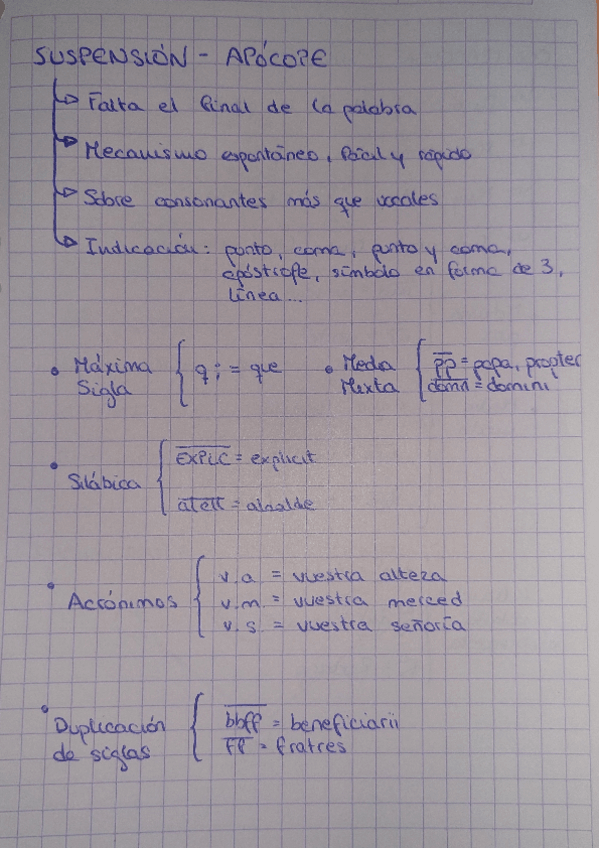 SUSPENSIÓN - APÓCOPE
Falta el final de la palabra
Mecanismo espontáneo, fácil y rápido
Sobre consonantes más que vocales
Indicación: punto, coma, punto y coma,
apóstrofe, símbolo en forma de 3,
línea...
• Máxima Sigla { q; = que
• Media Mixta { p̅p̅ = papa, propter
d̅o̅m̅n̅ = domini
• Silábica { E̅X̅P̅L̅C̅ = explicit
= alcalde
• Acrónimos { v.a = vuestra alteza
v.m. = vuestra merced
v.s. = vuestra señoría
• Duplicación de siglas { b̅b̅f̅f̅ = beneficiarii
f̅f̅ = fratres